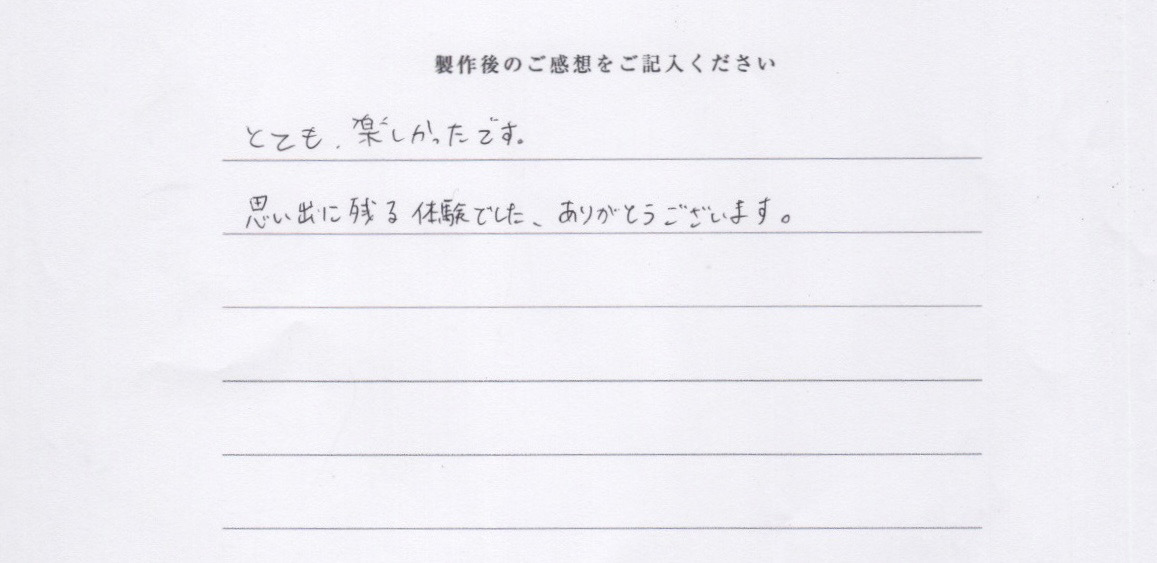 製作後のご感想をご記入ください
とても、楽しかったです。
思い出に残る体験でした、ありがとうございます。